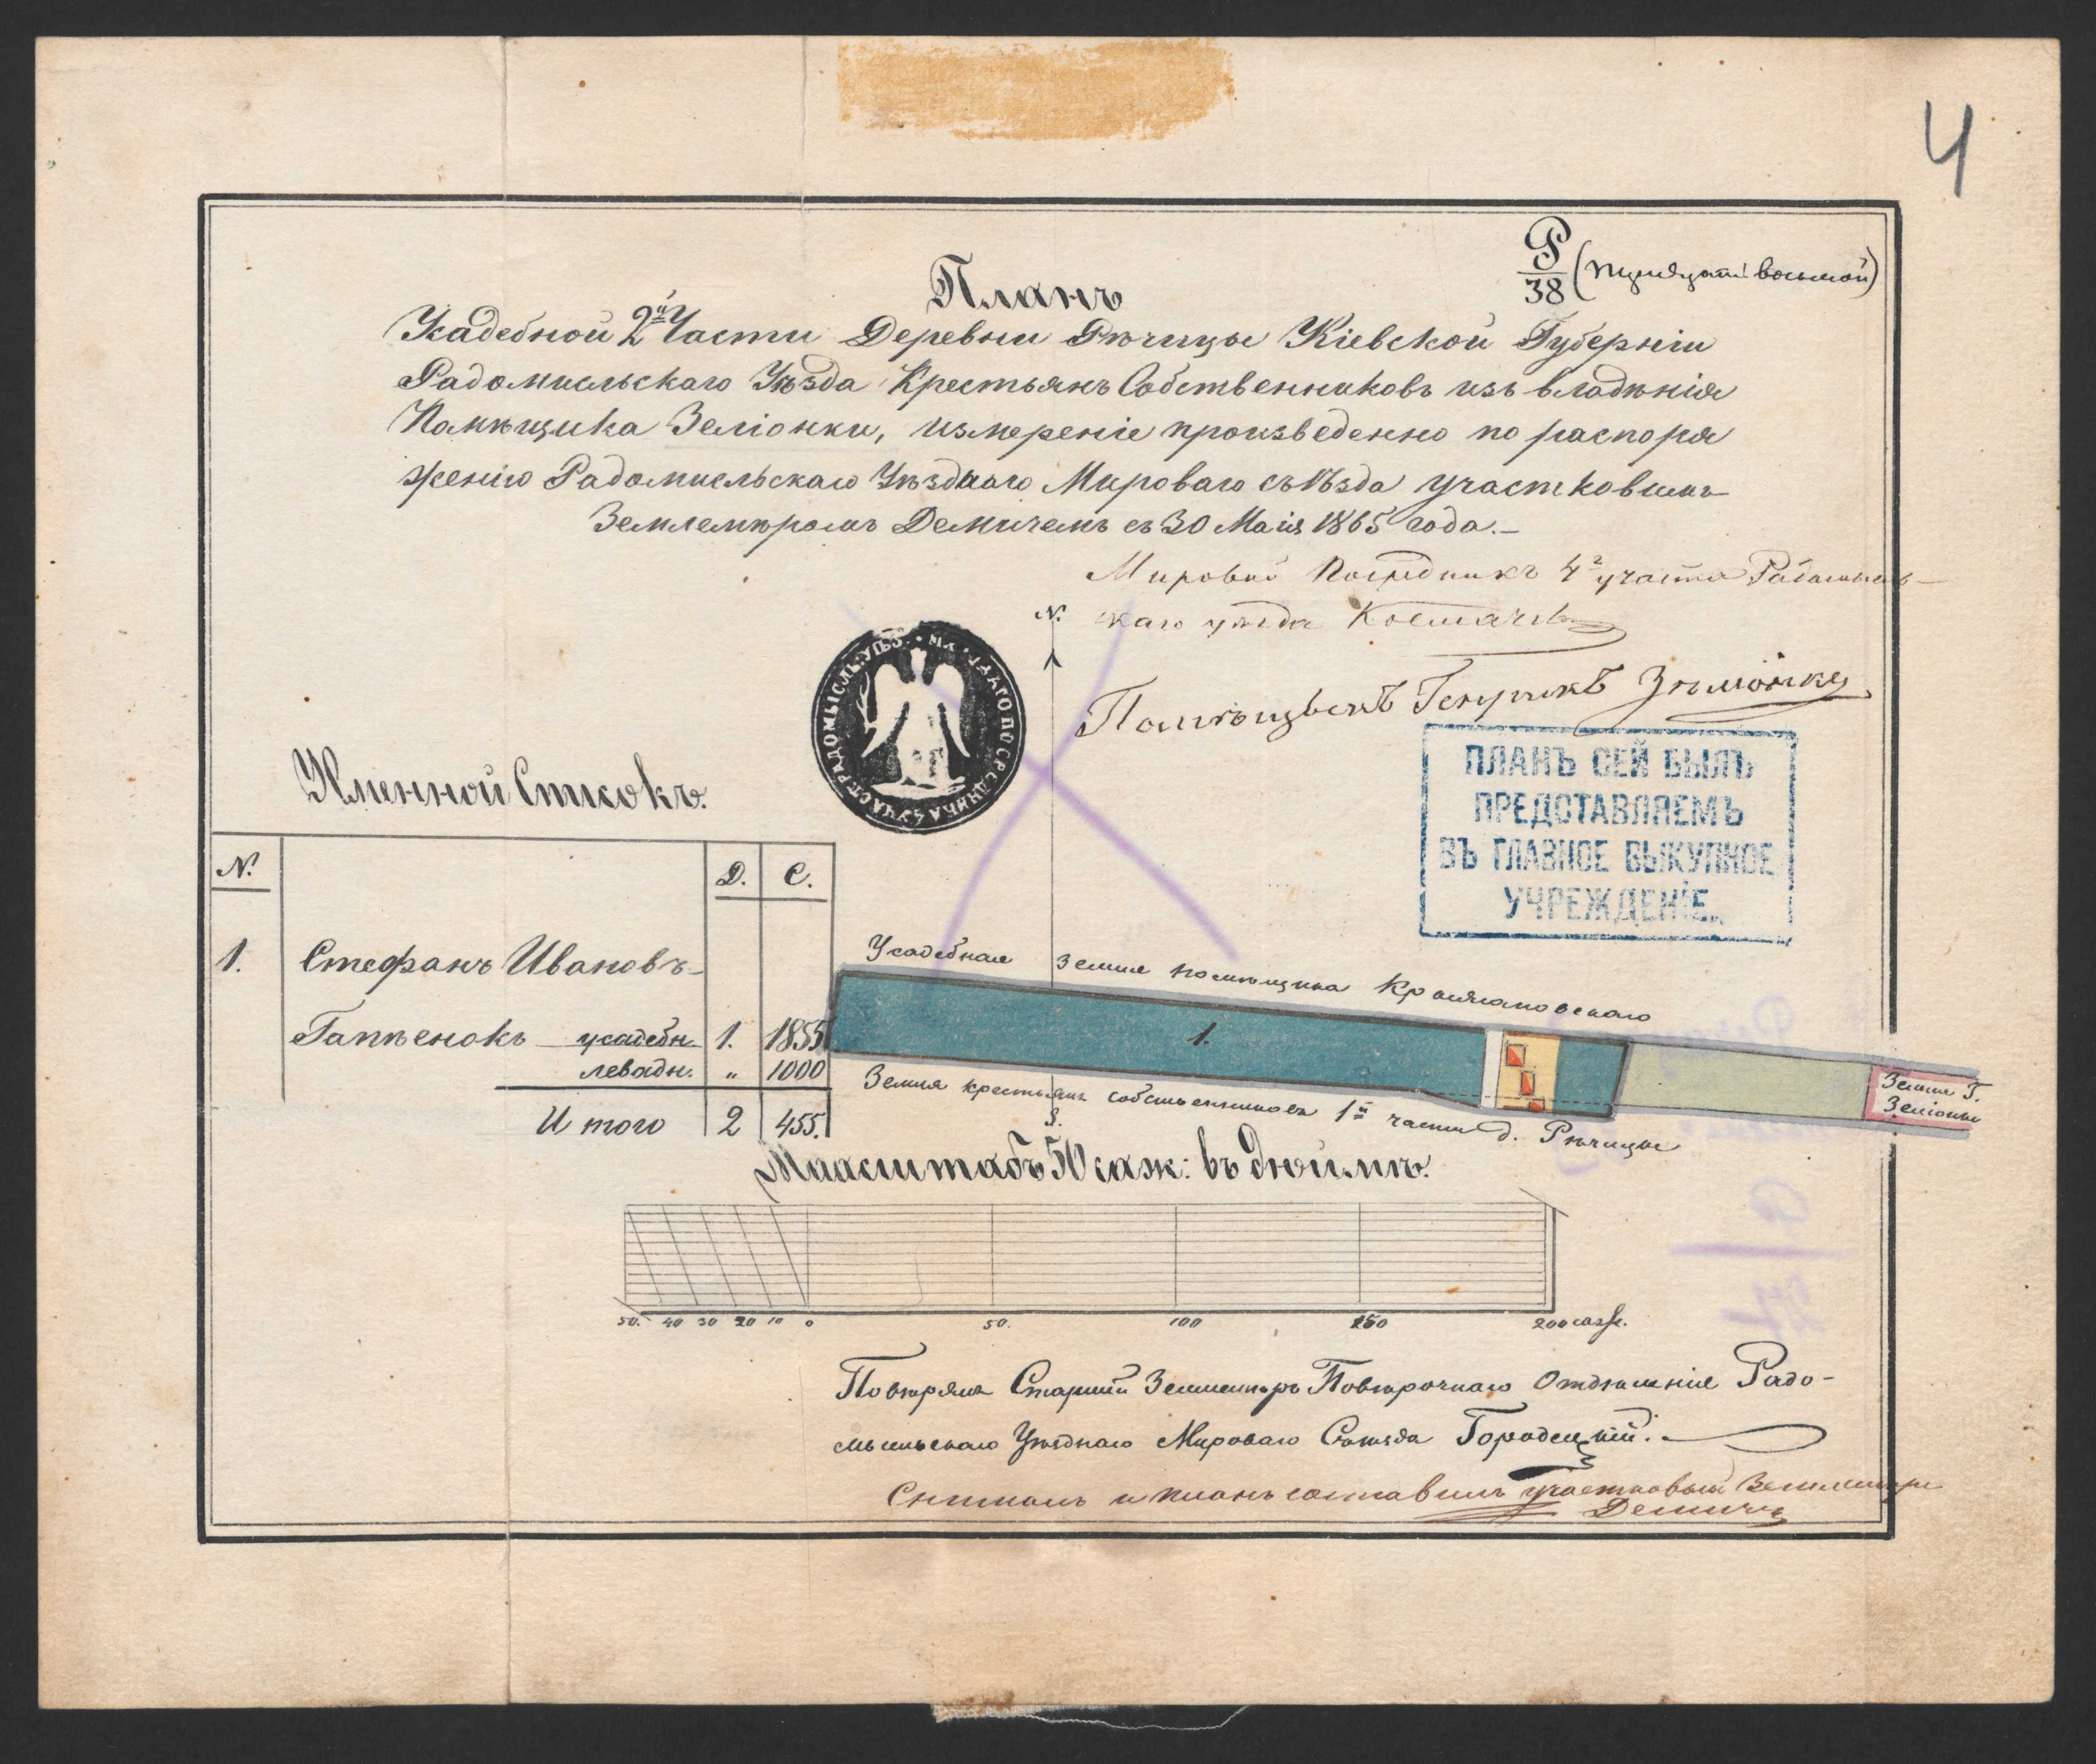 4
Р/38 (тридцать восьмой)
Планъ
Усадебной 2й Части Деревни Рѣчицы Кіевской Губерніи
Радомысльскаго Уѣзда Крестьянъ Собственниковъ изъ владѣнія
Помѣщика Зеліонки, измереніе произведенно по распоря
женію Радомысльскаго Уѣзднаго Мироваго съѣзда участковымъ
Землемѣромъ Демичемъ съ 30 Маія 1865 года.
Мировой Посредникъ 4го участка Радомысль-
скаго уѣзда
N.
Помѣщыкъ Генрикъ
ПЛАНЪ СЕЙ БЫЛЪ
ПРЕДСТАВЛЯЕМЪ
ВЪ ГЛАВНОЕ ВЫКУПНОЕ
УЧРЕЖДЕНІЕ.
Именной Списокъ.
N. Д. С.
1. Стефанъ Ивановъ
Гапѣенокъ усадебн. 1. 1855
левадн. " 1000
Итого 2 455.
Усадебная земля помѣщика
1.
Земля Г.
Зеліонки
Земля крестьянъ собственниковъ 1й части д. Рѣчицы
S.
Маасштабъ 50 саж: въ дюймѣ.
50. 40 30 20 10 0 50. 100 150 200 саж.
Повѣрялъ Старшій Землемѣръ Повѣрочнаго Отдѣленія Радо-
мысльскаго Уѣзднаго Мироваго Съѣзда Городецкій.
Снималъ и планъ составилъ участковый Землемѣръ
Демичъ